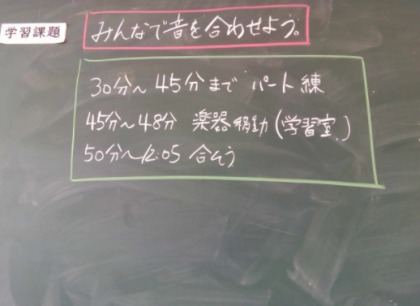 学習課題
みんなで音を合わせよう。
30分～45分まで パート練
45分～48分 楽器移動(学習室)
50分～12:05 合そう